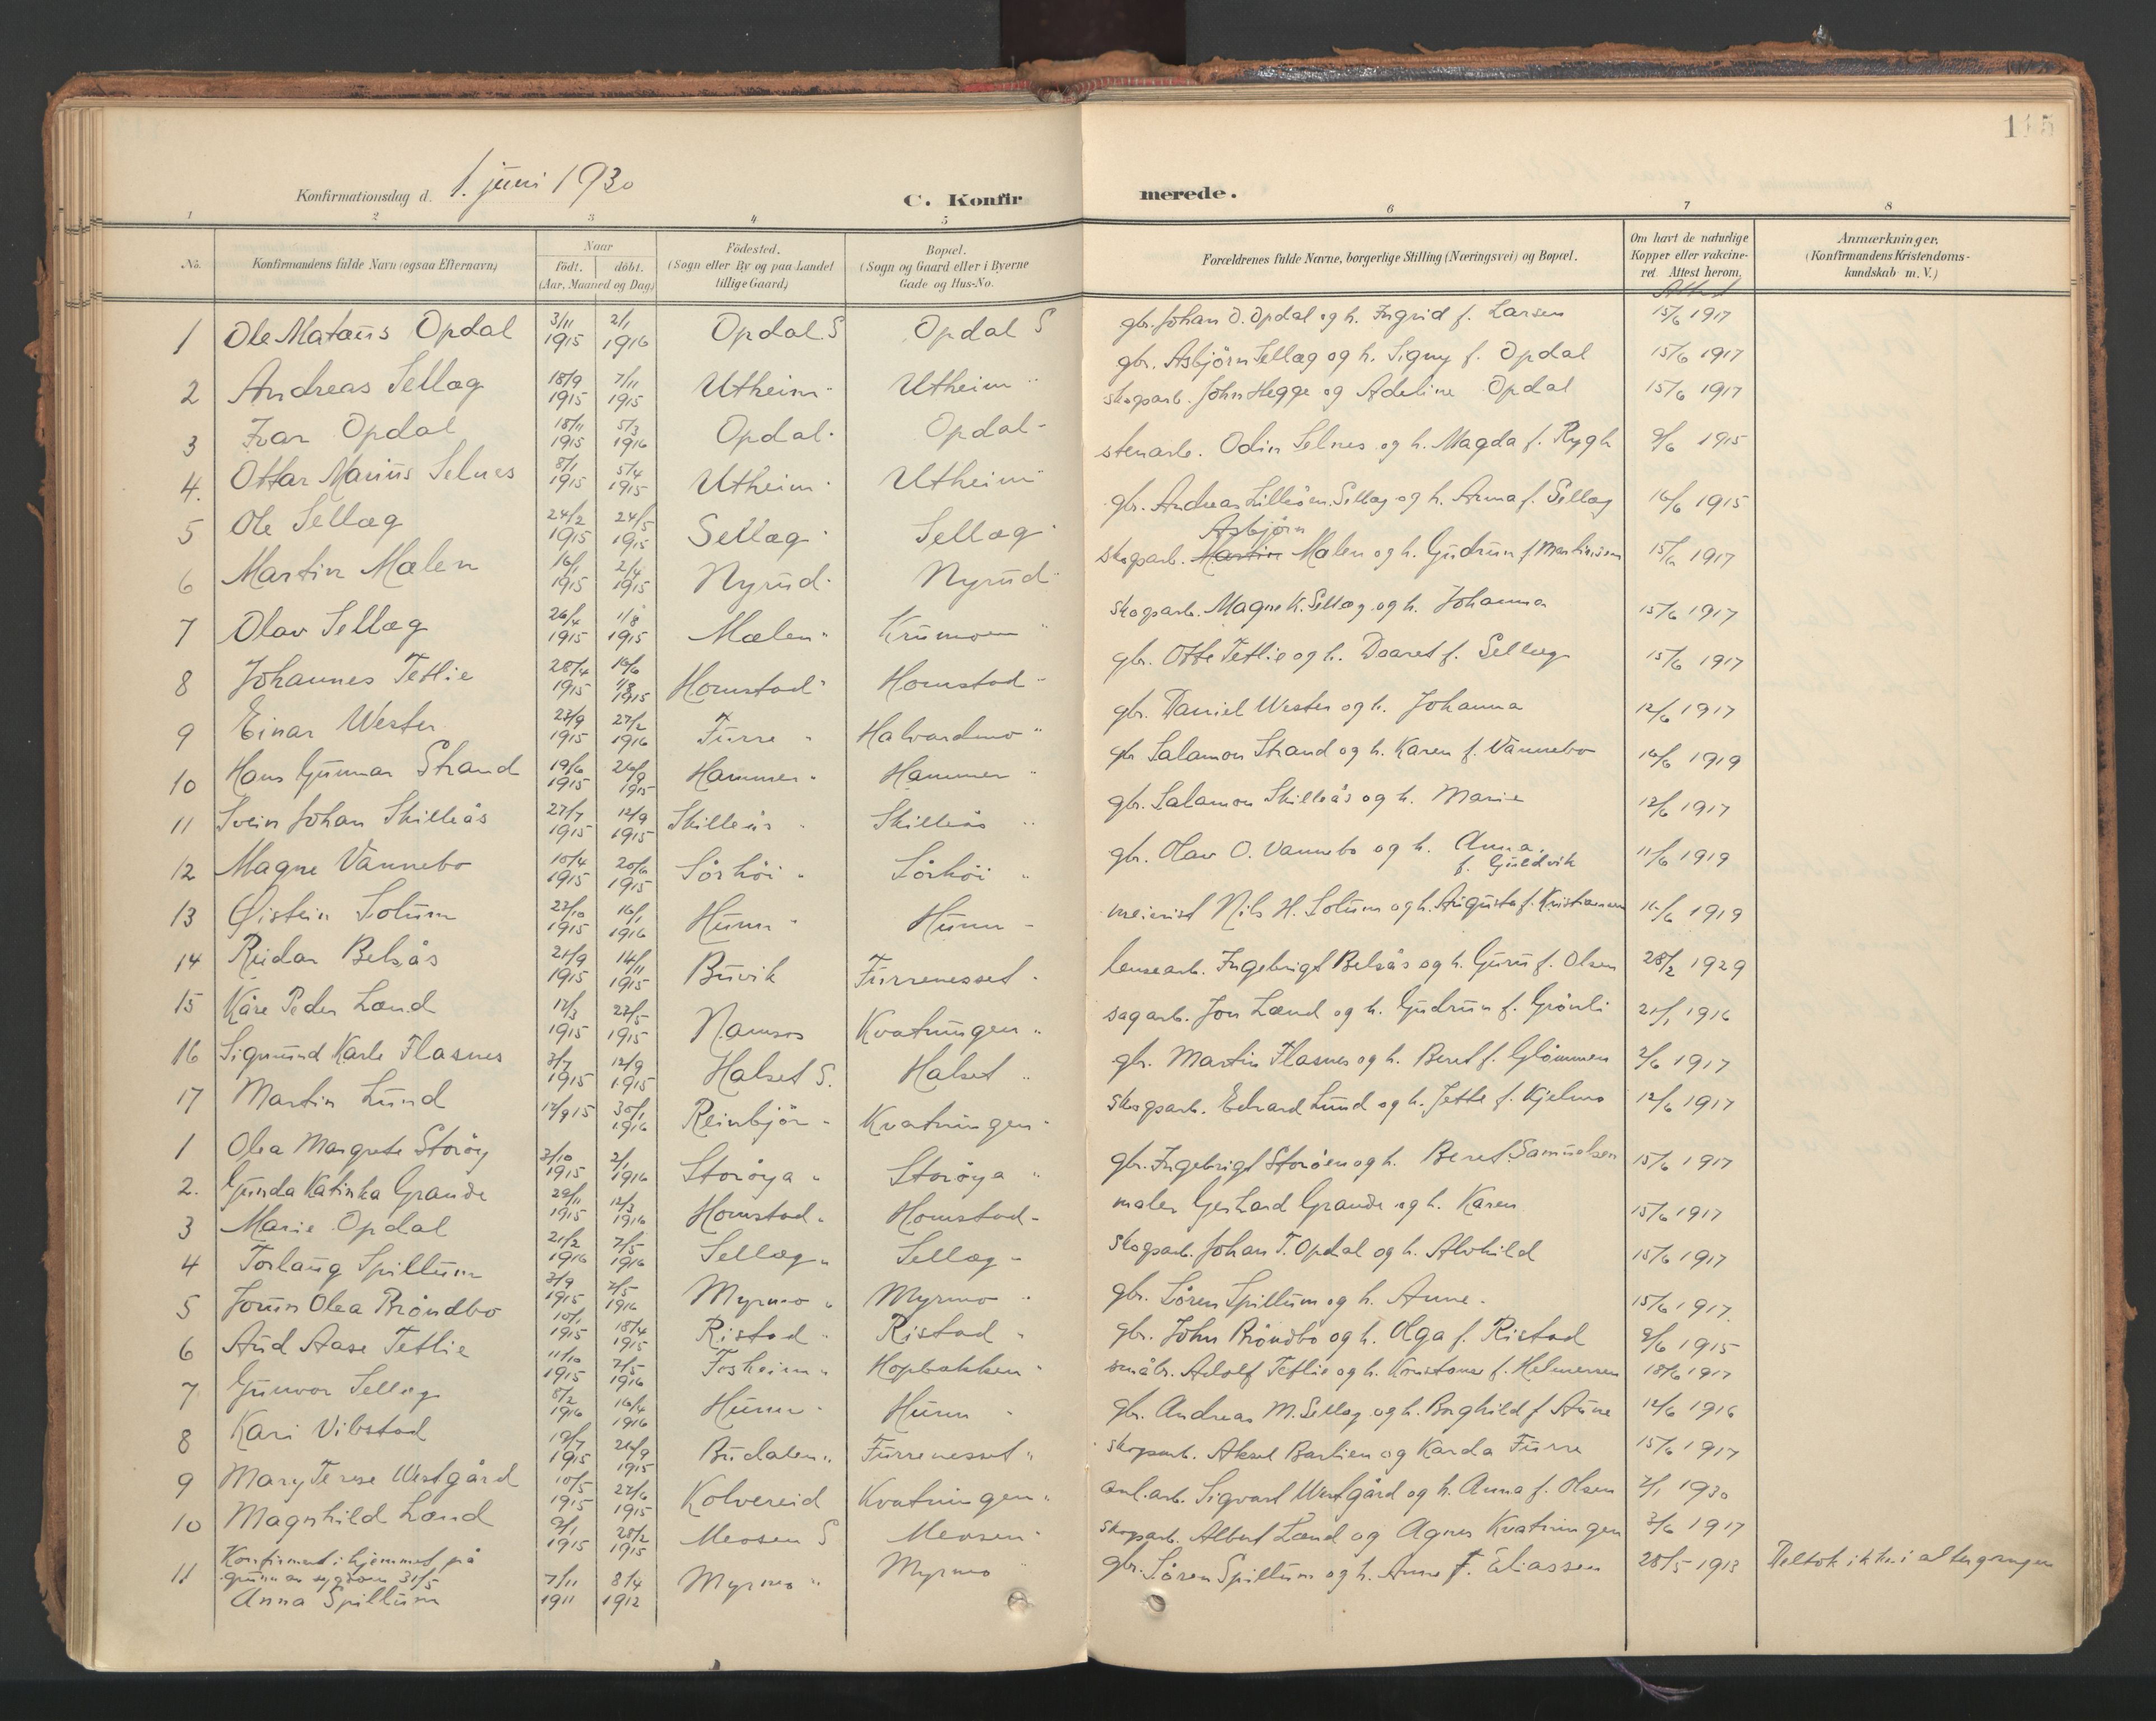 115
Konfirmationsdag d. 1. juni 1930
C. Konfirmerede.
1 2 3 4 5 6 7 8
No. Konfirmandens fulde Navn (ogsaa Efternavn) Naar født. døbt. (Aar, Maaned og Dag) Fødested. (Sogn eller By og paa Landet tillige Gaard) Bopæl. (Sogn og Gaard eller i Byerne Gade og Hus-No. Forældrenes fulde Navne, borgerlige Stilling (Næringsvei) og Bopæl. Om havt de naturlige Kopper eller vakcineret. Attest herom. Anmærkninger. (Konfirmandens Kristendomskundskab m. V.)
1 Ole Mataus Opdal 3/11 1915 2/1 1916 Opdal S Opdal S gbr. Johan O. Opdal og h. Ingrid f. Larsen 15/6 1917
2 Andreas Sellæg 18/9 1915 7/11 1915 Utheim " Utheim " gbr. Asbjørn Sellæg og h. Signy f. Opdal 15/6 1917
3 Ivar Opdal 18/11 1915 5/3 1916 Opdal " Opdal " skogsarb. John Hegge og Adeline Opdal 15/6 1917
4. Ottar Marius Selnes 8/1 1915 5/4 1915 Utheim " Utheim " stenarb. Odin Selnes og h. Magda f. Rygh 9/6 1915
5 Ole Sellæg 24/2 1915 24/5 1915 Sellæg " Sellæg " gbr. Andreas Sellæg og h. Anna f. Sellæg 16/6 1915
6 Martin Mælen 16/1 1915 2/4 1915 Nyrud " Nyrud " skogsarb. Martin Asbjørn Mælen og h. Gudrun f. Martinsen 15/6 1917
7 Olav Sellæg 26/4 1915 1/8 1915 Mælen " Krumoen " skogsarb. Magne K. Sellæg og h. Johanna 15/6 1917
8 Johannes Tetlie 28/4 1915 16/6 1/8 1915 Homstad " Homstad " gbr. Otte Tetlie og h. Daaret f. Sellæg 15/6 1917
9 Einar Wester 23/9 1915 27/2 1916 Furre " Halvardmo " gbr. Daniel Wester og h. Johanna 12/6 1917
10 Hans Gunnar Strand 19/6 1915 26/9 1915 Hammer " Hammer " gbr Salamon Strand og h. Karen f. Vannebo 16/6 1919
11 Svein Johan Skilleås 27/7 1915 12/9 1915 Skilleås " Skilleås " gbr. Salamon Skilleås og h. Marie 12/6 1917
12 Magne Vannebo 10/4 1915 20/6 1915 Sørhøi " Sørhøi " gbr. Olav O. Vannebo og h. Anna f. Guldvik 11/6 1919
13 Øistein Solum 23/10 1915 16/1 1916 Hunn " Hunn " meierist Nils H. Solum og h. Augusta f. Kristiansen 16/6 1919
14 Reidar Belsås 21/9 1915 14/11 1915 Buvik Furrenesset " lensearb. Ingebrigt Belsås og h. Guru f. Olsen 28/2 1929
15 Kåre Peder Lænd 12/3 1915 23/5 1915 Namsos Kvatningen " sagarb. Jon Lænd og h. Gudrun f. Grønli 21/1 1916
16 Sigmund Karle Flasnes 3/7 1915 12/9 1915 Halset S. Halset " gbr. Martin Flasnes og h. Beret f. Glømmen 2/6 1917
17 Martin Lund 12/9 15 30/1 1916 Reinbjør " Kvatningen " skogsarb. Edvard Lund og h. Jette f. Kjelmo 12/6 1917
1 Olea Margrete Storøy 3/10 1915 2/1 1916 Storøya " Storøya " gbr. Ingebrigt Storøen og h. Beret Samuelsen 15/6 1917
2. Gunda Katinka Grande 29/11 1915 12/3 1916 Homstad " Homstad " maler Gerhard Grande og h. Karen 15/6 1917
3 Marie Opdal 21/2 1916 7/5 1916 Sellæg " Sellæg " skogsarb. Johan T. Opdal og h. Alvhild 15/6 1917
4 Torlaug Spillum 3/9 1915 7/5 1916 Myrmo " Myrmo " gbr. Søren Spillum og h. Anne. 15/6 1917.
5 Jorun Olea Brøndbo 10/1 1915 18/4 1915 Ristad " Ristad " gbr. John Brøndbo og h. Olga f. Ristad 9/6 1915
6 Aud Aase Tetlie 11/10 1915 7/5 1916 Fosheim " Hopbakken " småbr. Adolf Tetlie og h. Konstanse f. Helmersen 18/6 1917
7 Gunvor Sellæg 8/2 1916 16/4 1916 Hunn " Hunn " gbr. Andreas M. Sellæg og h. Borghild f. Aune 14/6 1916
8 Kari Vibstad 19/7 1915 26/9 1915 Budalen " Furrenesset " skogsarb. Aksel Barlien og Karda Furre 15/6 1917
9 Mary Terese Westgård 10/5 1915 27/6 1915 Kolvereid Kvatningen " anl.arb. Sigvart Westgård og h. Anna f. Olsen 2/1 1930
10 Magnhild Lænd 9/1 1915 28/2 1915 Meosen S Meosen " skogsarb. Albert Lænd og Agnes Kvatningen 3/6 1917
11 Konfirmert i hjemmet på grunn av sygdom 31/5 Anna Spillum 7/11 1911 8/4 1912 Myrmo " Myrmo " gbr. Søren Spillum og h. Anne f. Eliassen 28/5 1913 Deltok ikke i altergangen